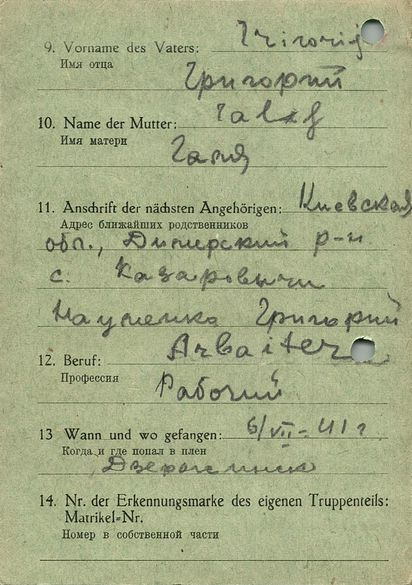 9. Vorname des Vaters: Grigorij
Имя отца
Григорий
10. Name der Mutter:
Имя матери
Галя
11. Anschrift der nächsten Angehörigen: Киевская
Адрес ближайших родственников
обл., Дымерский р-н
с. Казаровычи
Науменко Григорий
12. Beruf: Arbaiter
Профессия
Рабочий
13 Wann und wo gefangen: 6/VII-41 г
Когда и где попал в плен
Дзержинск
14. Nr. der Erkennungsmarke des eigenen Truppenteils:
Matrikel-Nr.
Номер в собственной части